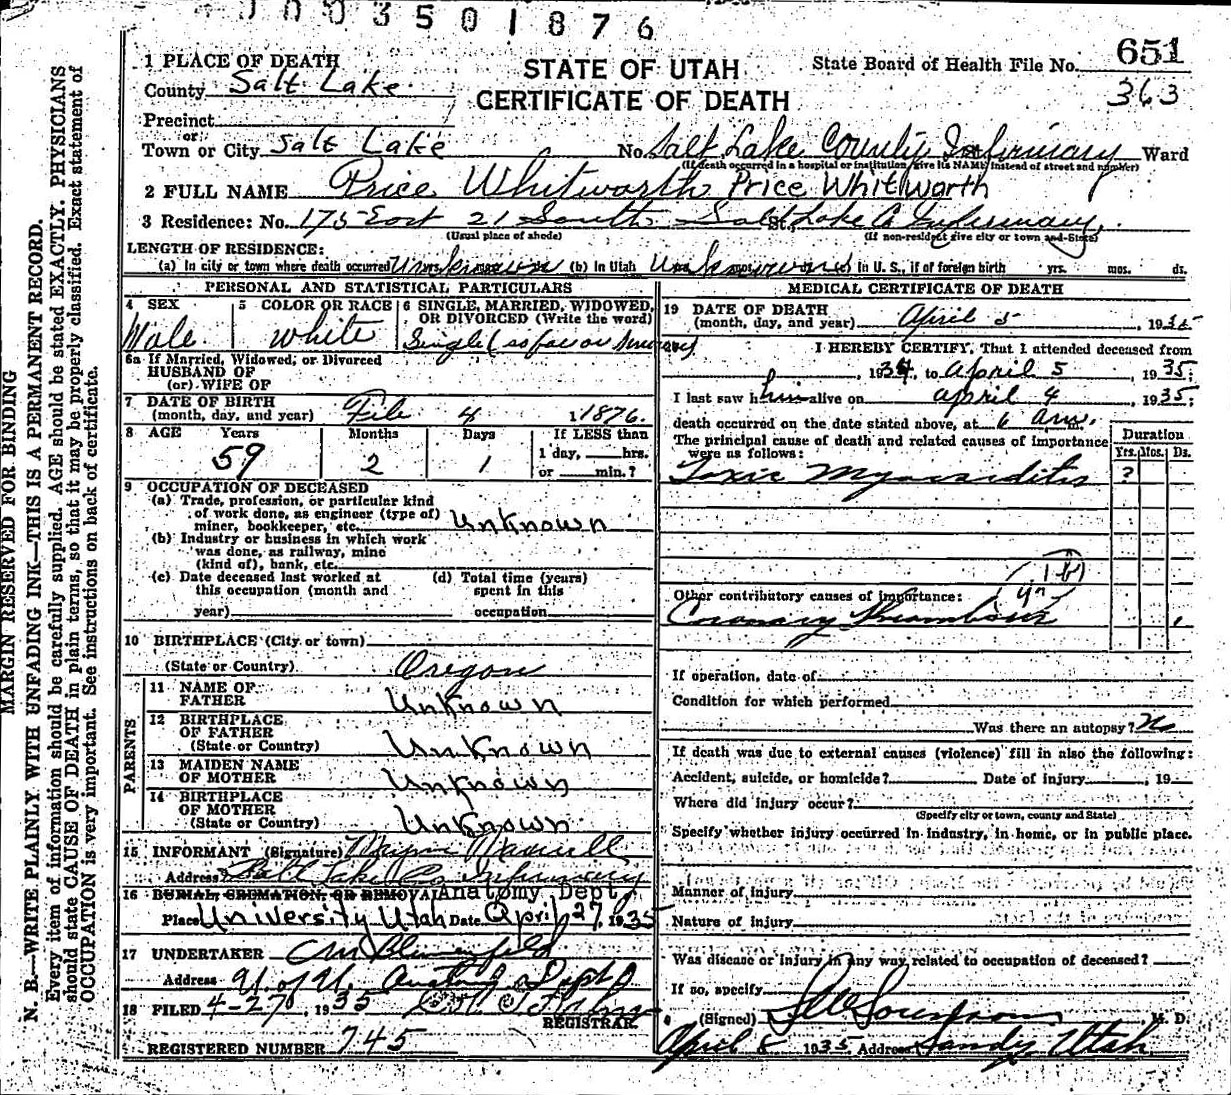 0003501876
1 PLACE OF DEATH
County Salt Lake
Precinct
or
Town or City Salt Lake
STATE OF UTAH
CERTIFICATE OF DEATH
State Board of Health File No. 651
363
No. Salt Lake County Infirmary Ward
(If death occurred in a hospital or institution, give its NAME instead of street and number)
2 FULL NAME Price Whitworth Price Whitworth
3 Residence: No. 175 East 21 South St., Salt Lake Co Infirmary.
(Usual place of abode) (If non-resident give city or town and State)
LENGTH OF RESIDENCE:
(a) In city or town where death occurred Unknown (b) In Utah Unknown (c) In U. S., if of foreign birth yrs. mos. ds.
PERSONAL AND STATISTICAL PARTICULARS
4 SEX 5 COLOR OR RACE 6 SINGLE, MARRIED, WIDOWED,
OR DIVORCED (Write the word)
Male White Single (so far as
6a If Married, Widowed, or Divorced
HUSBAND OF
(or) WIFE OF
7 DATE OF BIRTH
(month, day, and year) Feb 4 1 1876.
8 AGE Years Months Days If LESS than
1 day, hrs.
or min.?
59 2 1
9 OCCUPATION OF DECEASED
(a) Trade, profession, or particular kind
of work done, as engineer (type of)
miner, bookkeeper, etc. Unknown
(b) Industry or business in which work
was done, as railway, mine
(kind of), bank, etc.
(c) Date deceased last worked at (d) Total time (years)
this occupation (month and spent in this
year) occupation
10 BIRTHPLACE (City or town)
(State or Country) Oregon
PARENTS
11 NAME OF
FATHER Unknown
12 BIRTHPLACE
OF FATHER
(State or Country) Unknown
13 MAIDEN NAME
OF MOTHER Unknown
14 BIRTHPLACE
OF MOTHER
(State or Country) Unknown
15 INFORMANT (Signature) Wayne
Address Salt Lake Co Infirmary
16 BURIAL, CREMATION, OR REMOVAL Anatomy Dept
Place University Utah Date April 27, 1935
17 UNDERTAKER
Address U. of U. Anatomy Dept
18 FILED 4-27, 1935
REGISTRAR
REGISTERED NUMBER 745
MEDICAL CERTIFICATE OF DEATH
19 DATE OF DEATH
(month, day, and year) April 5, 1935
I HEREBY CERTIFY, That I attended deceased from
, 1934, to April 5, 1935;
I last saw him alive on April 4, 1935;
death occurred on the date stated above, at 6 am.
The principal cause of death and related causes of importance
were as follows:
Duration
Yrs. Mos. Ds.
Toxic Myocarditis ?
Other contributory causes of importance:
Coronary
If operation, date of
Condition for which performed
Was there an autopsy? No
If death was due to external causes (violence) fill in also the following:
Accident, suicide, or homicide? Date of injury , 19
Where did injury occur?
(Specify city or town, county and State)
Specify whether injury occurred in industry, in home, or in public place.
Manner of injury
Nature of injury
Was disease or injury in any way related to occupation of deceased?
If so, specify
(Signed) M. D.
April 8 1935 Address Sandy, Utah
MARGIN RESERVED FOR BINDING
N. B.—WRITE PLAINLY WITH UNFADING INK—THIS IS A PERMANENT RECORD.
Every item of information should be carefully supplied. AGE should be stated EXACTLY. PHYSICIANS
should state CAUSE OF DEATH in plain terms, so that it may be properly classified. Exact statement of
OCCUPATION is very important. See instructions on back of certificate.